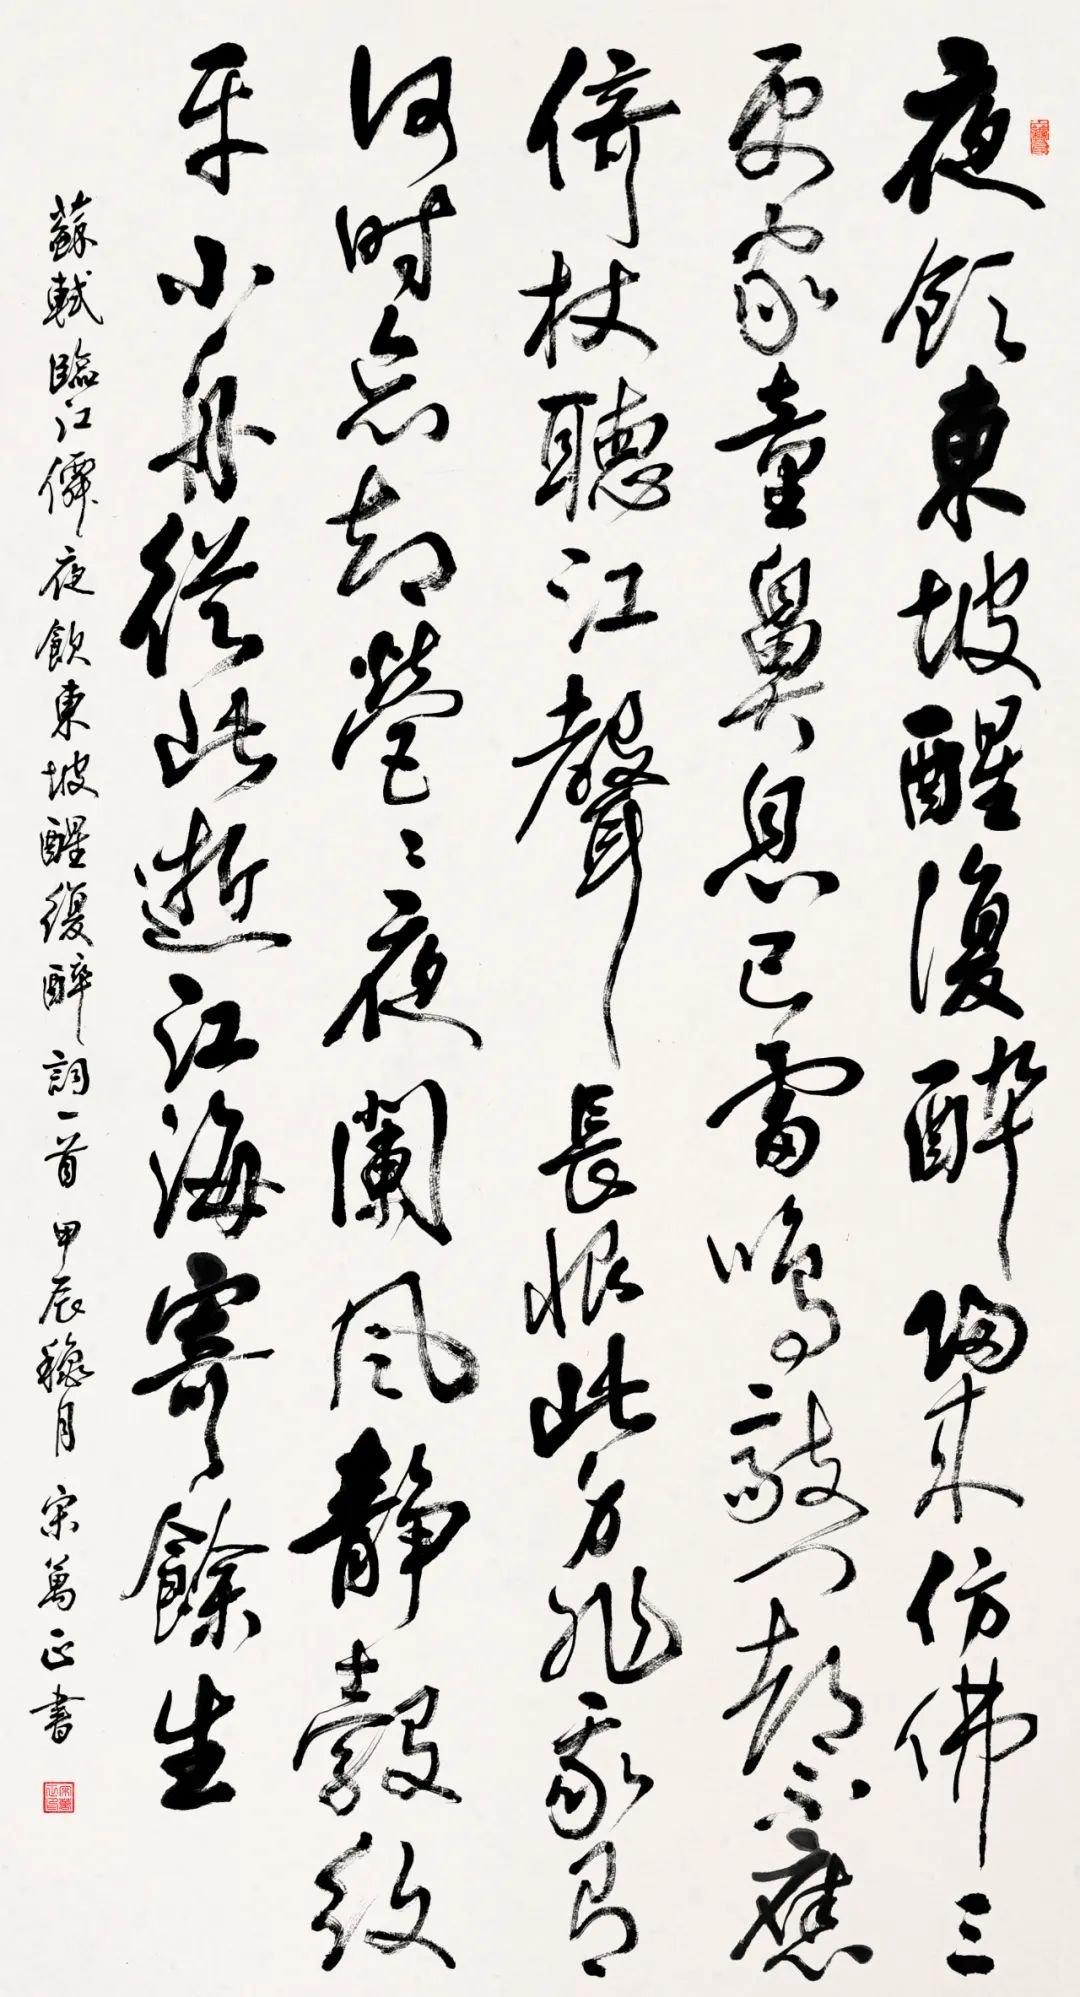 夜飲東坡醒復醉歸来仿佛三
更家童鼻息已雷鳴敲门都不應
倚杖聽江聲長恨此身非我有
何时忘却營〻夜闌风静縠紋
平小舟從此逝江海寄餘生
蘇軾臨江僊夜飲東坡醒復醉詞一首甲辰穐月宋萬正書